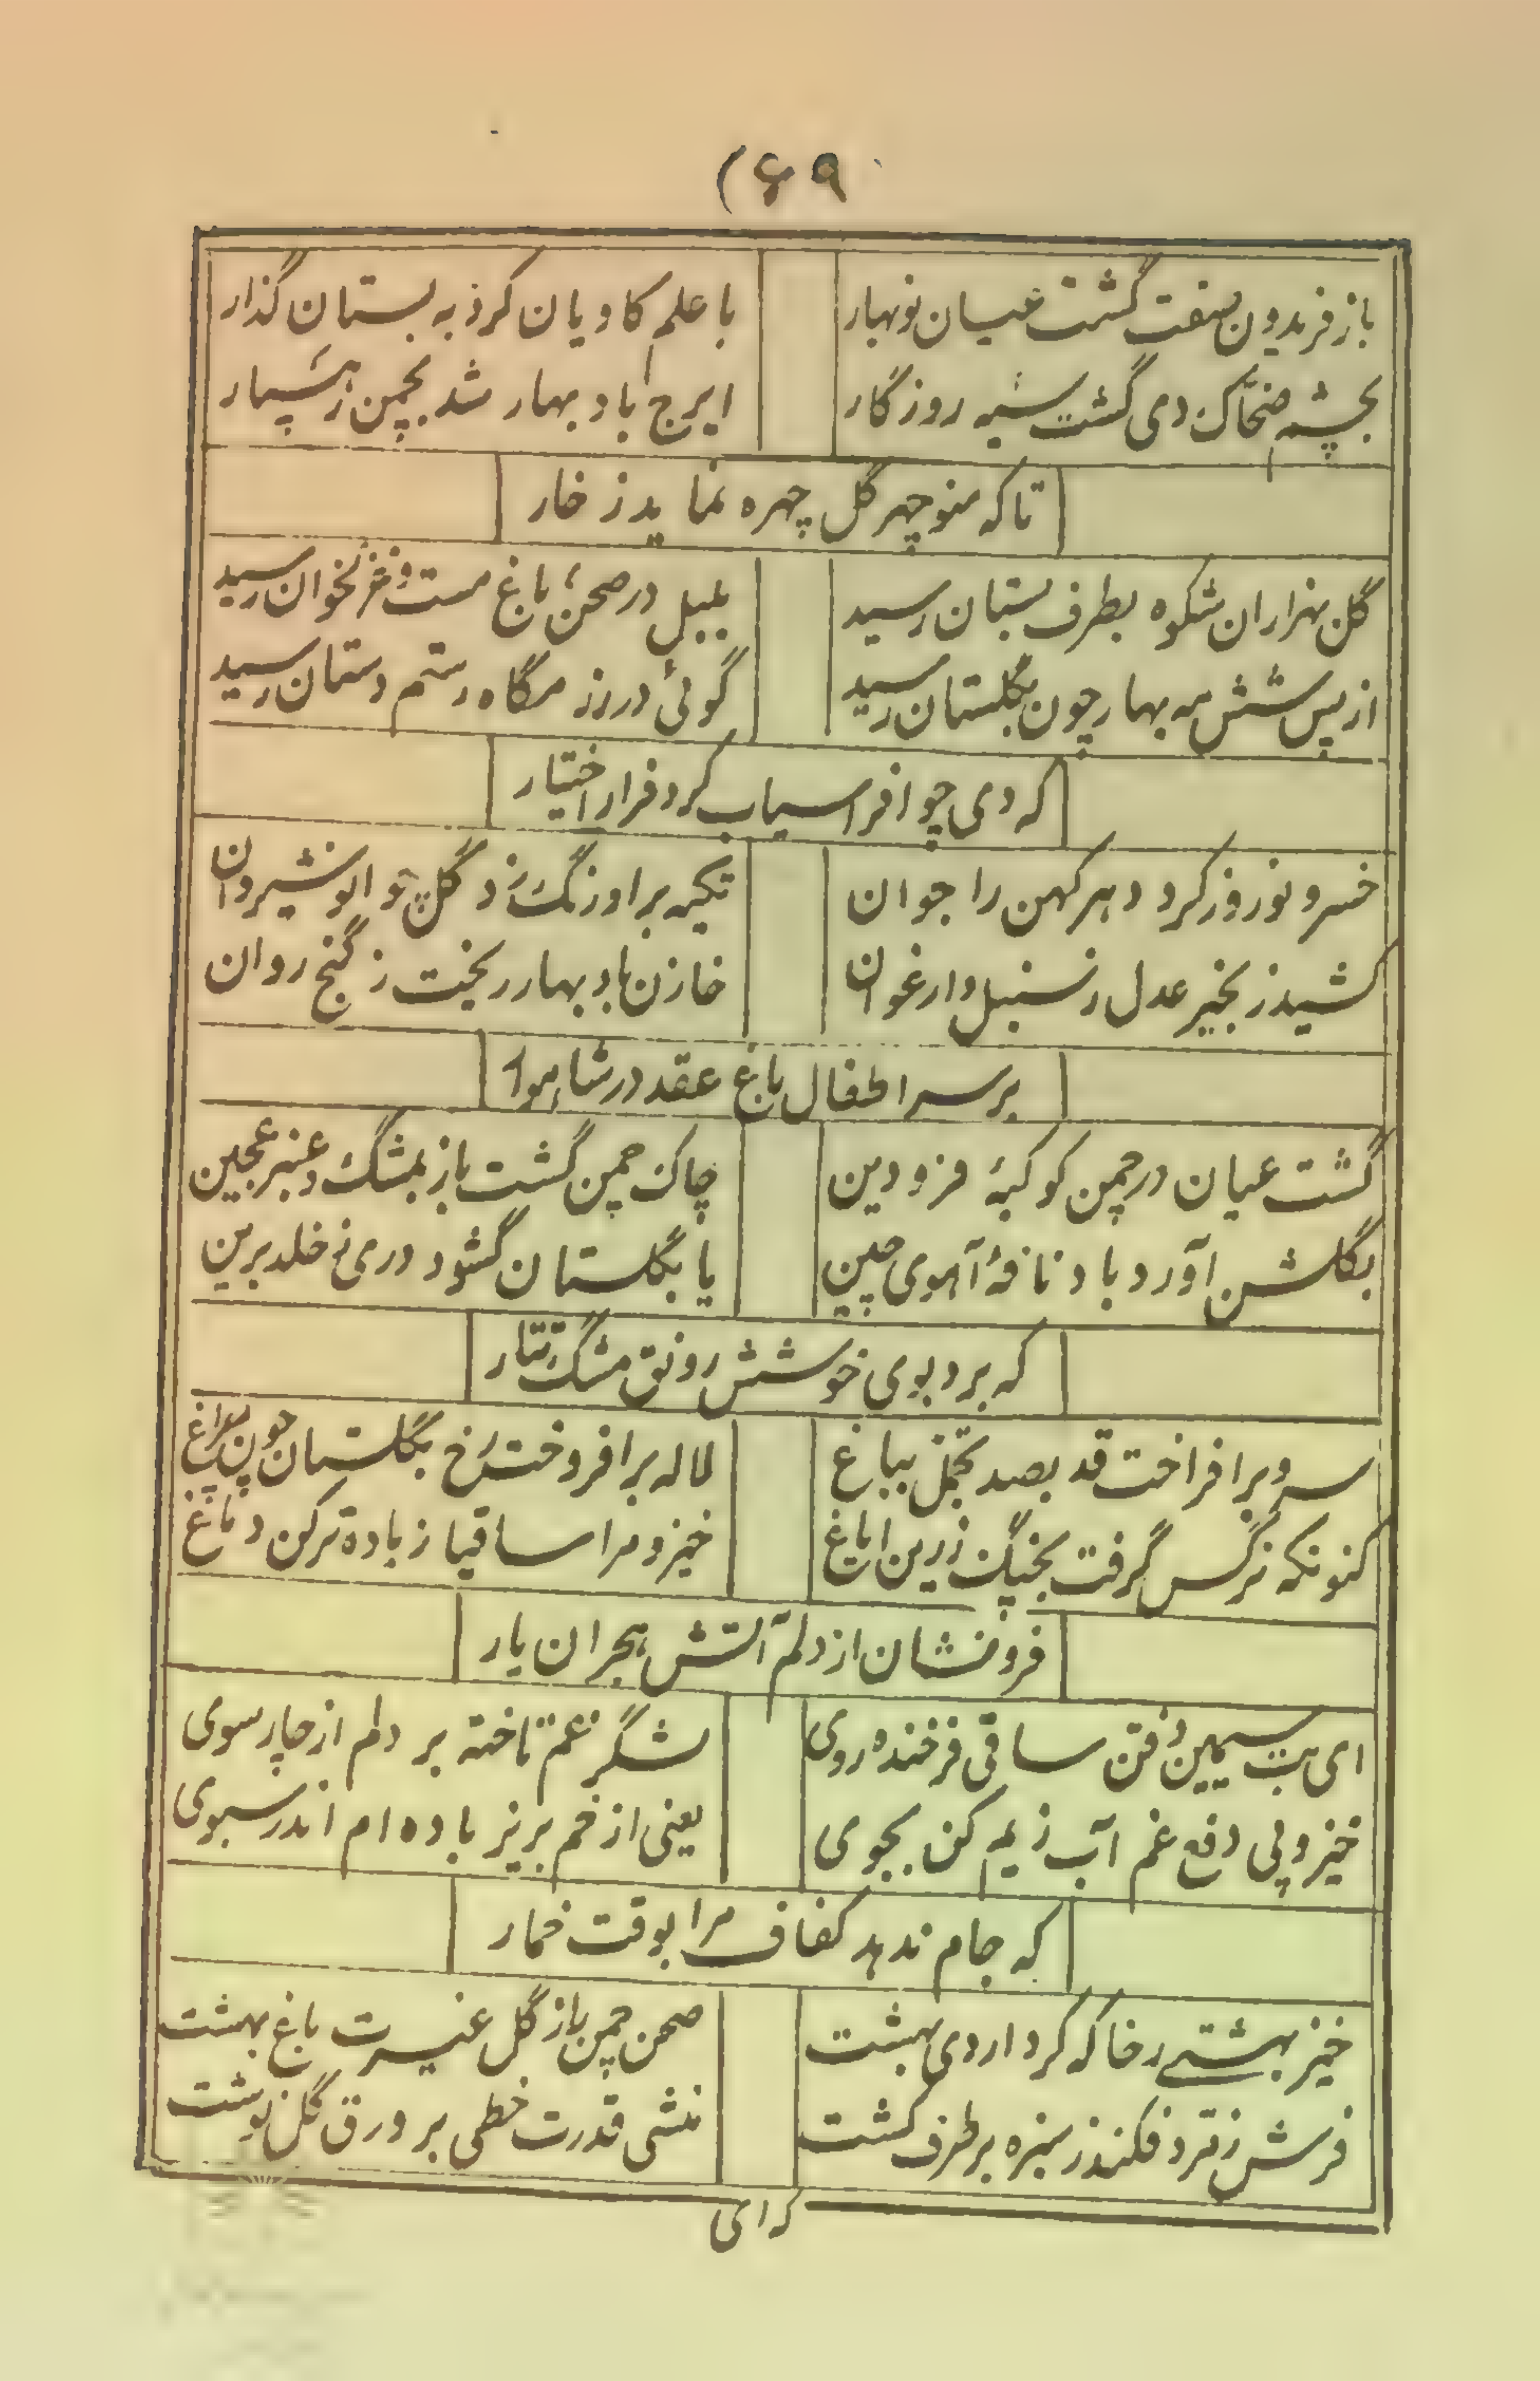 ۶۹)
باز فریدون صفت گشت عیان نوبهار
با علم کاویان کرد به بستان گذار
بچشم ضحّاک دی گشت سیه روزگار
ایرج باد بهار شد بچمن رهسپار
تاکه منوچهر گل چهره نماید ز خار
گل بهزاران شکوه بطرف بستان رسید
بلبل در صحن باغ مست و غزلخوان رسید
از پس شش مه بهار چون بگلستان رسید
گوئی در رزمگاه رستم دستان رسید
که دی چو افراسیاب کرد فرار اختیار
خسرو نوروز کرد دهر کهن را جوان
تکیه بر اورنگ زد گل چو انوشیروان
کشید زنجیر عدل ز سنبل و ارغوان
خازن باد بهار ریخت ز گنج روان
بر سر اطفال باغ عقد در شاهوار
گشت عیان در چمن کوکبهٔ فرودین
چاک چمن گشت باز بمشک و عنبر عجین
بگلشن آورد باد نافهٔ آهوی چین
یا بگلستان گشود دری ز خلد برین
که برد بوی خوشش رونق مشک تتار
سرو برافراخت قد بصد تجمّل بباغ
لاله برافروخت رخ بگلستان چون چراغ
کنونکه نرگس گرفت بچنگ زرین ایاغ
خیز و مرا ساقیا ز باده تر کن دماغ
فرونشان از دلم آتش هجران یار
ای بت سیمین ذقن ساقی فرخنده روی
لشگر غم تاخته بر دلم از چار سوی
خیز و پی دفع غم آب زیم کن بجوی
یعنی از خم بریز باده ام اندر سبوی
که جام ندهد کفاف مرا بوقت خمار
خیز بهشتی رخا که کرد اردی بهشت
صحن چمن باز گل غیرت باغ بهشت
فرش زمرد فکند ز سبزه بر طرف کشت
منشی قدرت خطی بر ورق گل نوشت